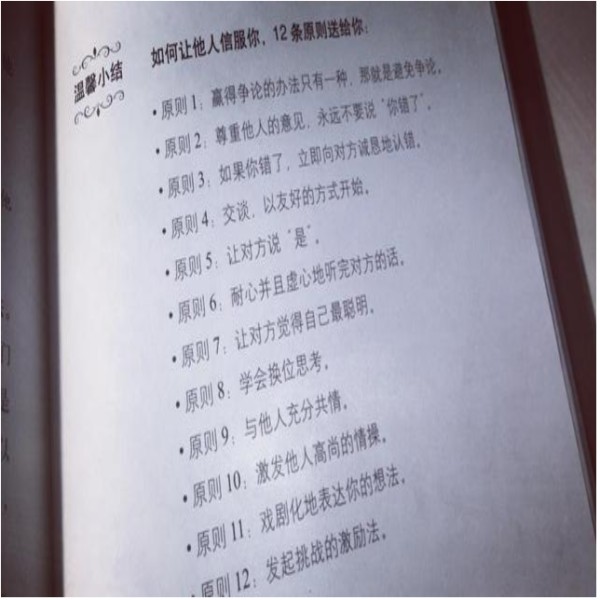 温馨小结
如何让他人信服你，12条原则送给你：
• 原则1：赢得争论的办法只有一种，那就是避免争论。
• 原则2：尊重他人的意见，永远不要说“你错了”。
• 原则3：如果你错了，立即向对方诚恳地认错。
• 原则4：交谈，以友好的方式开始。
• 原则5：让对方说“是”。
• 原则6：耐心并且虚心地听完对方的话。
• 原则7：让对方觉得自己最聪明。
• 原则8：学会换位思考。
• 原则9：与他人充分共情。
• 原则10：激发他人高尚的情操。
• 原则11：戏剧化地表达你的想法。
原则12：发起挑战的激励法。